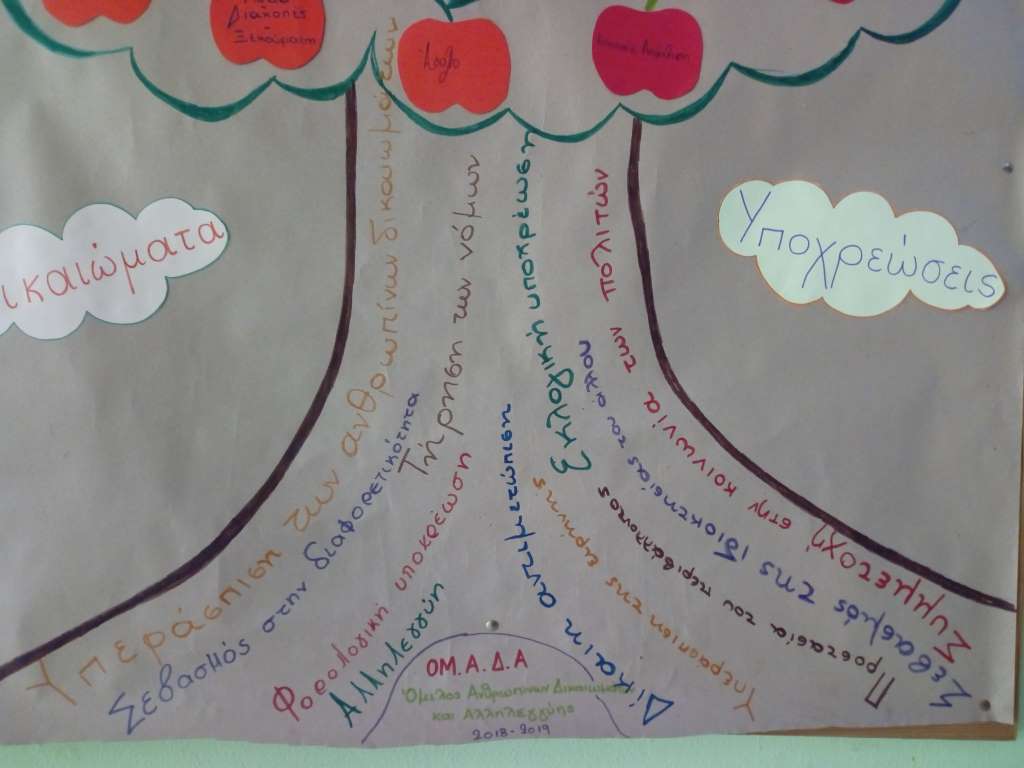 Διακοπές
Ξεκούραση
ικαιώματα
Υποχρεώσεις
Υπεράσπιση των ανθρωπίνων δικαιωμάτων
Σεβασμός στην διαφορετικότητα
Τήρηση των νόμων
Φορολογική υποχρέωση
Αλληλεγγύη
Δίκαιη αντιμετώπιση
Σχολική υποχρέωση
Υπεράσπιση της ειρήνης
Προστασία του περιβάλλοντος
Σεβασμός της ιδιοκτησίας του άλλου
Συμμετοχή στην κοινωνία των πολιτών
ΟΜ.Α.Δ.Α
Όμιλος Ανθρωπίνων Δικαιωμάτων
και Αλληλεγγύης
2018-2019